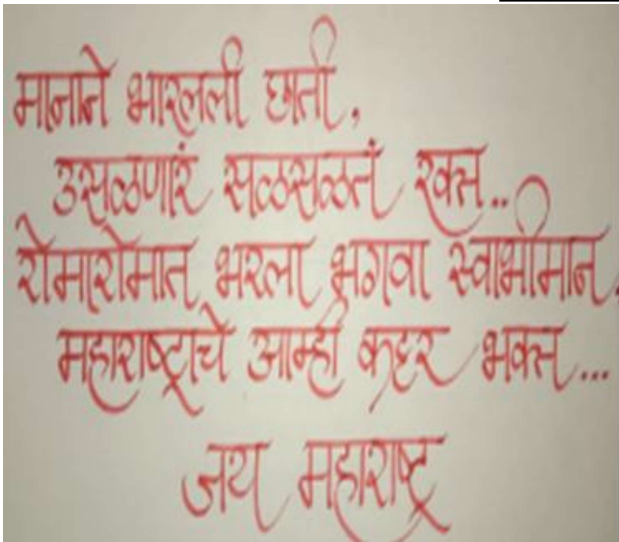 मानाने भारलली छाती,
उसळणारं सळसळतं रक्त..
रोमारोमात भरला भगवा स्वाभीमान,
महाराष्ट्राचे आम्ही कट्टर भक्त...
जय महाराष्ट्र